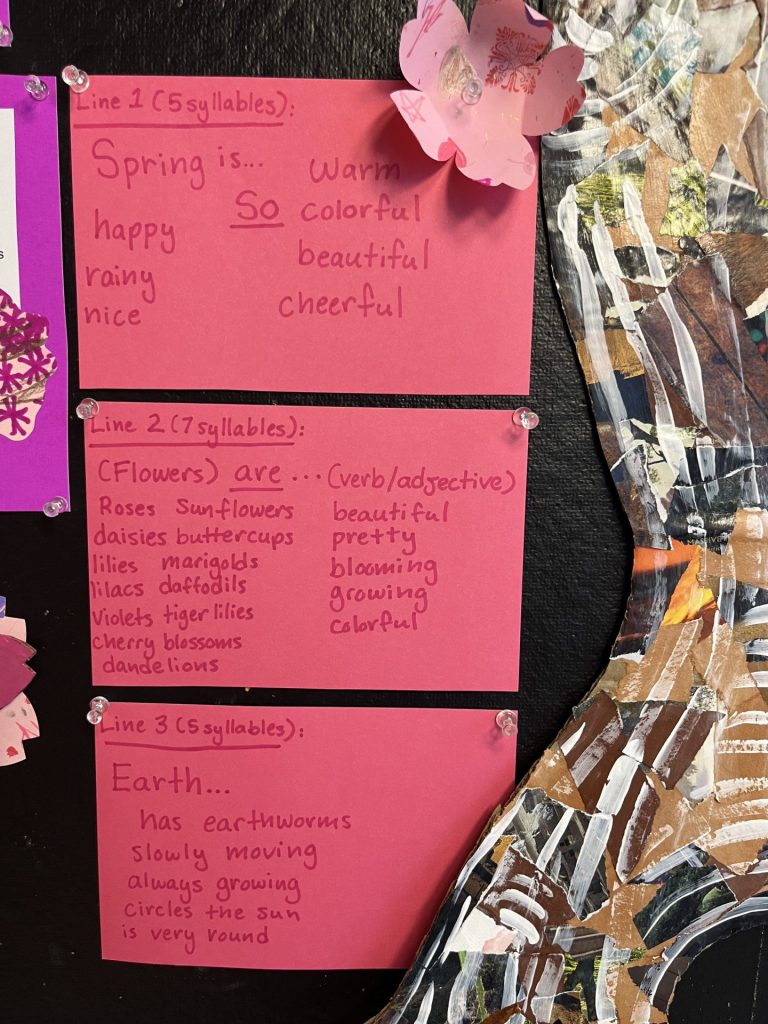 Line 1 (5 syllables):
Spring is... warm
happy So colorful
rainy beautiful
nice cheerful
Line 2 (7 syllables):
(Flowers) are ... (verb/adjective)
Roses Sunflowers beautiful
daisies buttercups pretty
lilies marigolds blooming
lilacs daffodils growing
Violets tiger lilies colorful
cherry blossoms
dandelions
Line 3 (5 syllables):
Earth...
has earthworms
slowly moving
always growing
circles the sun
is very round
s